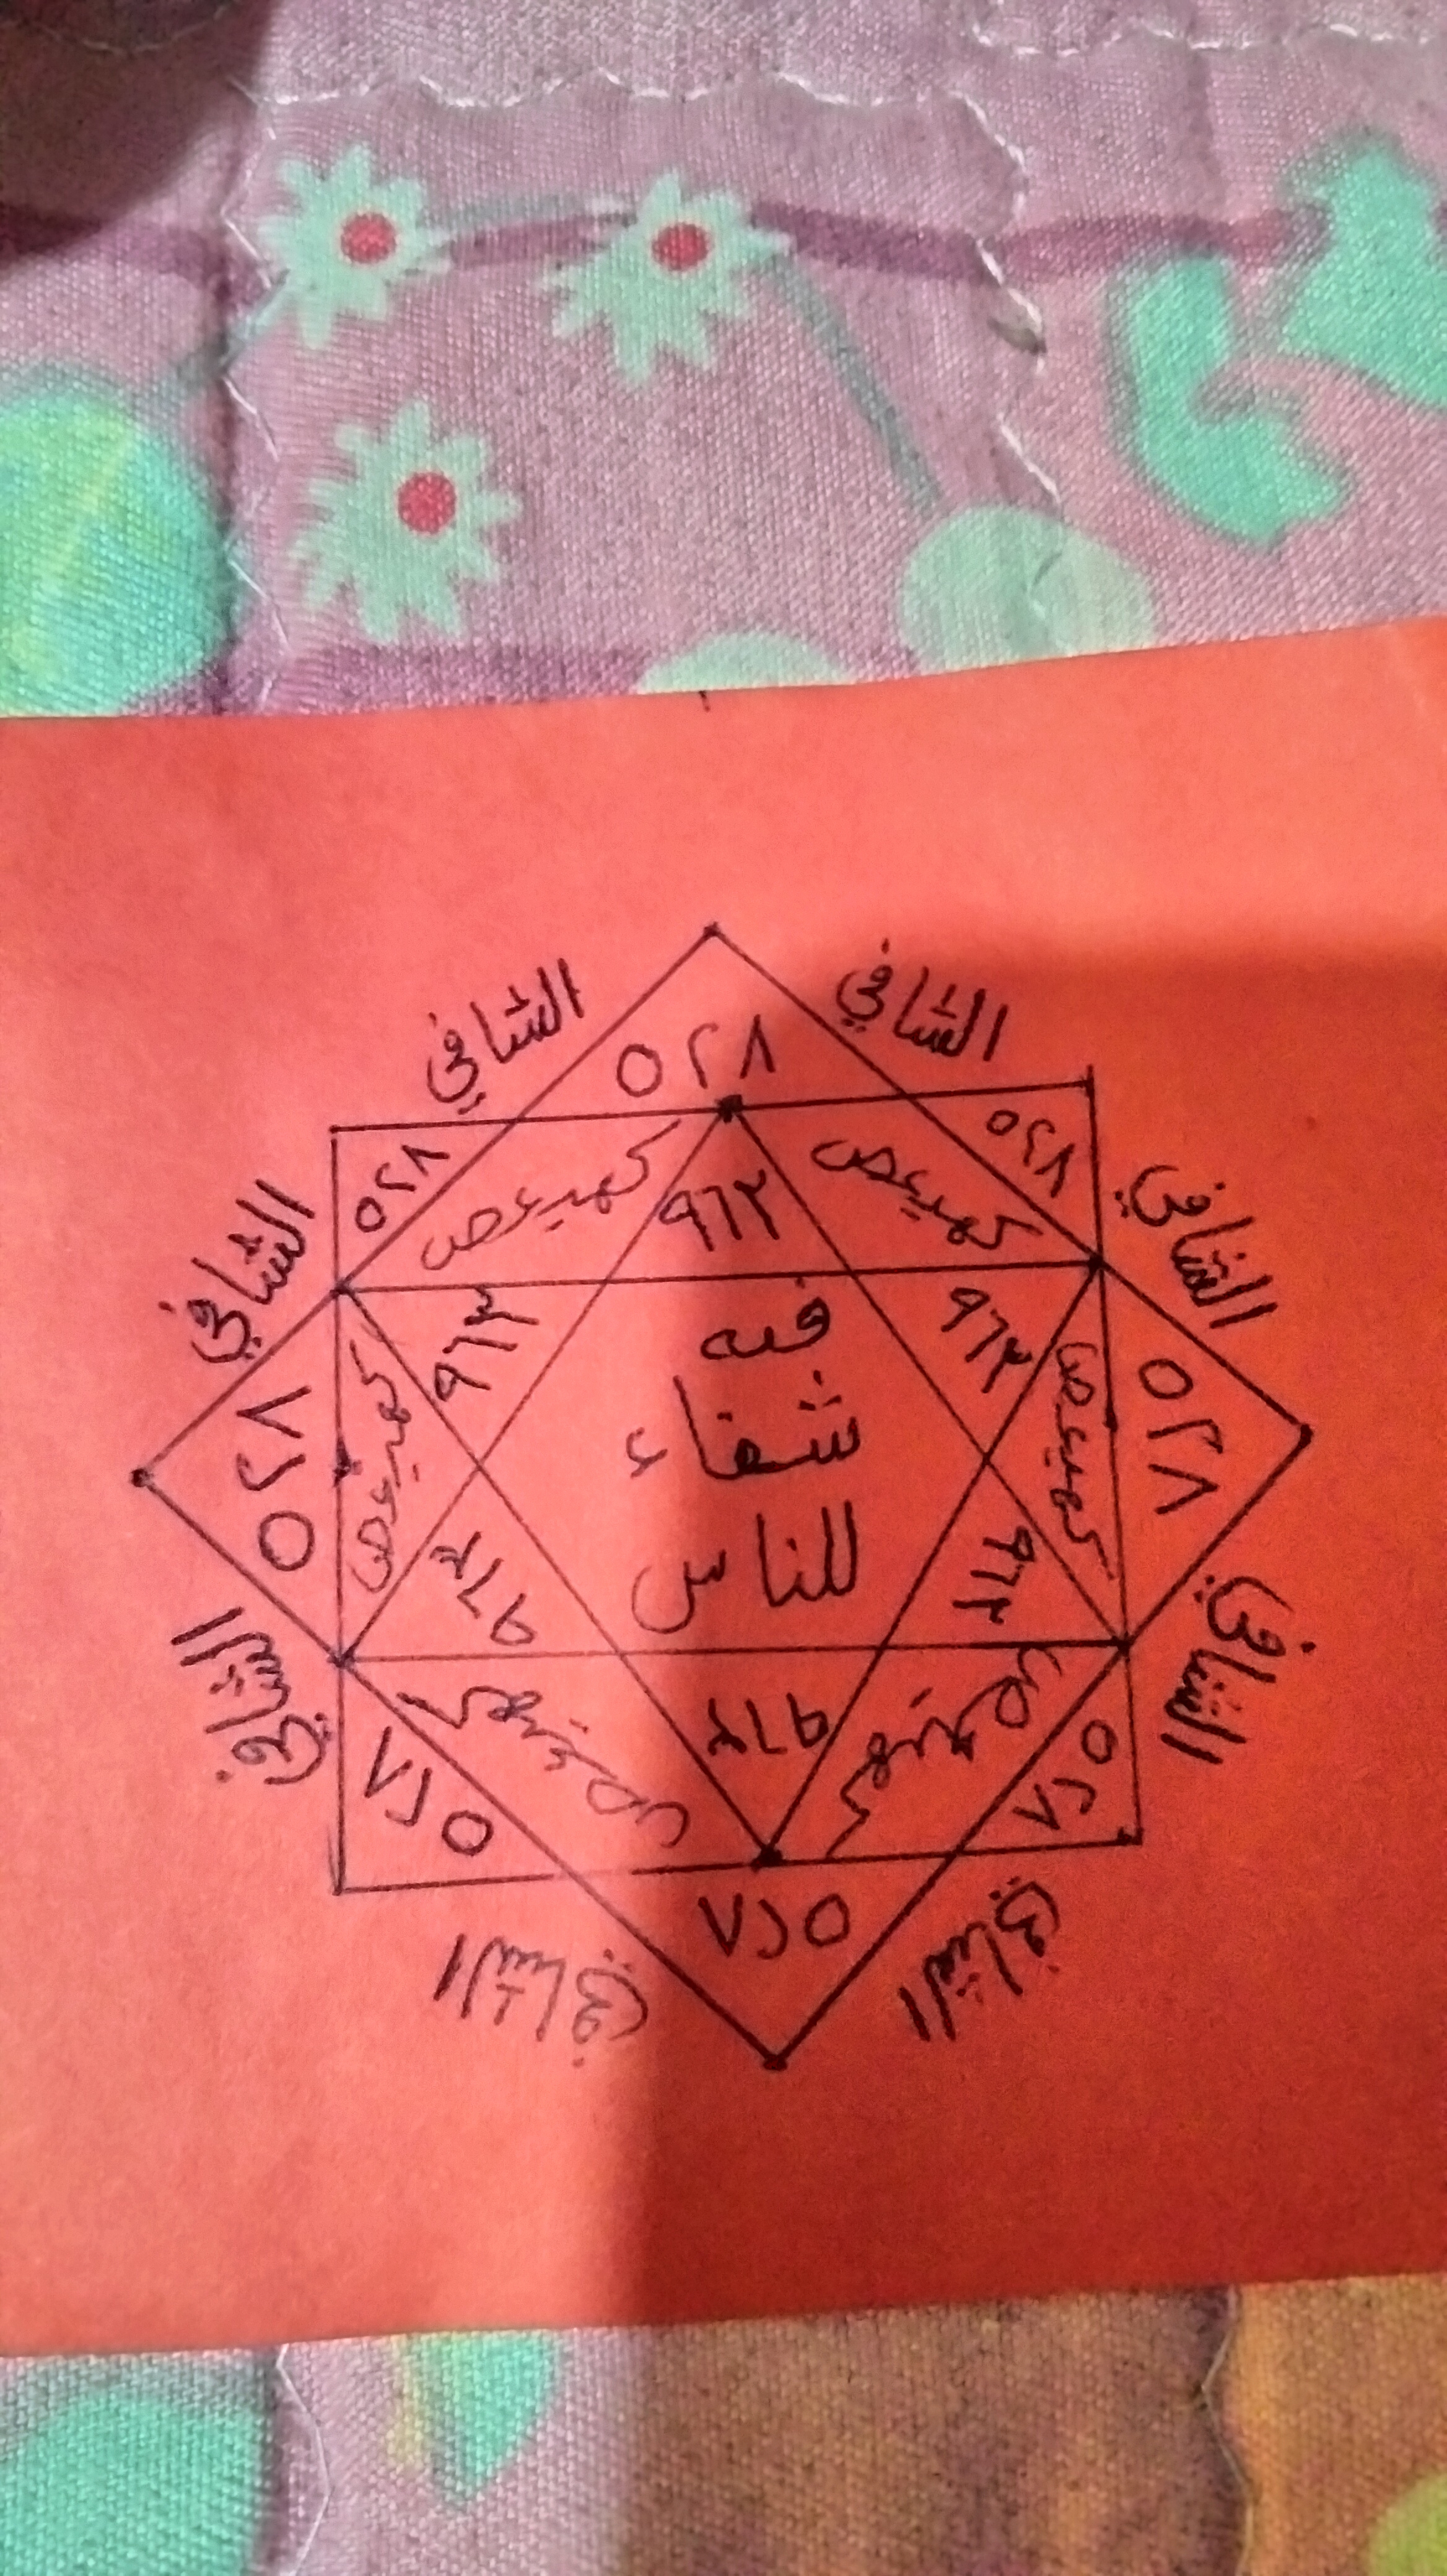 الشافي
الشافي
٥٢٨
٥٢٨
٥٢٨
كهيعص
كهيعص
٩٦٢
الشافي
الشافي
٩٦٢
٩٦٢
فيه
شفاء
للناس
٥٢٨
كهيعص
كهيعص
٥٢٨
٩٦٢
٩٦٢
الشافي
الشافي
٩٦٢
كهيعص
كهيعص
٥٢٨
٥٢٨
٥٢٨
الشافي
الشافي